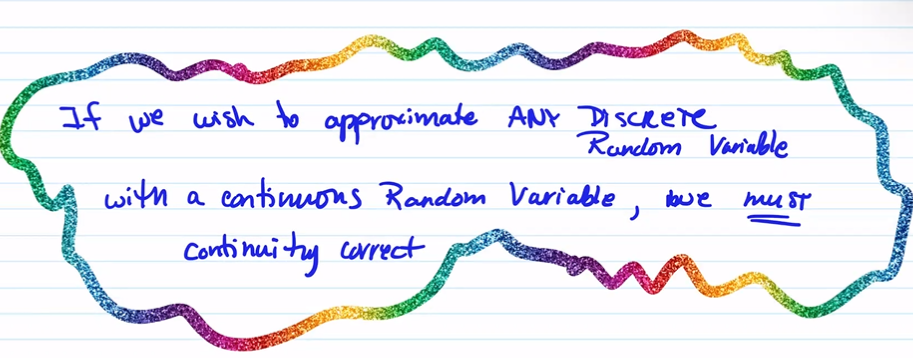 If we wish to approximate ANY DISCRETE
Random Variable
with a continuous Random Variable, we must
continuity correct